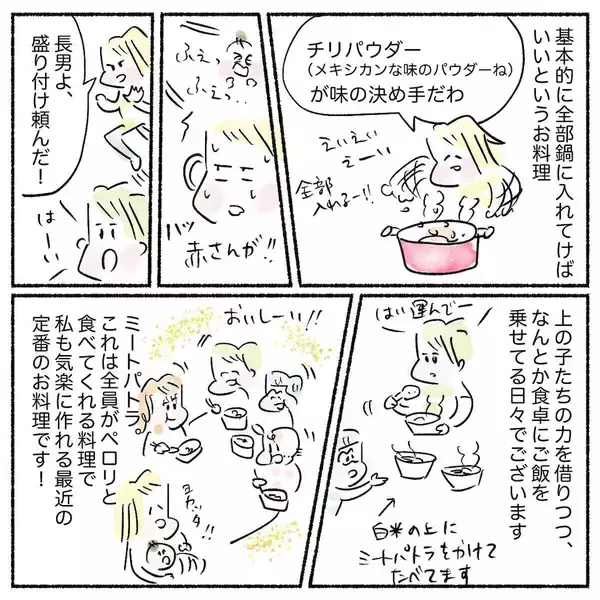 基本的に全部鍋に入れてけば
いいというお料理
チリパウダー
（メキシカンな味のパウダーね）
が味の決め手だわ
えいえい
えーい
全部
入れるー!!
ふぇっ
ふぇっ
ハッ
赤さんが!!
長男よ、
盛り付け頼んだ！
はーい
上の子たちの力を借りつつ、
なんとか食卓にご飯を
乗せてる日々でございます
はい運んでー
白米の上に
ミートパトラをかけて
たべてます
おいしーい!!
ミートパトラ。
これは全員がペロリと
食べてくれる料理で
私も気楽に作れる最近の
定番のお料理です！
ヨカッタ!!